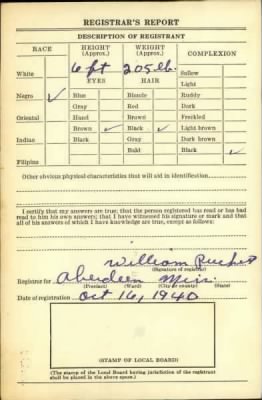 REGISTRAR'S REPORT
DESCRIPTION OF REGISTRANT
RACE HEIGHT (Approx.) WEIGHT (Approx.) COMPLEXION
White 6 ft 205 lb. Sallow
EYES HAIR Light
Negro ✓ Blue Blonde Ruddy
Gray Red Dark
Oriental Hazel Brown Freckled
Brown ✓ Black ✓ Light brown
Indian Black Gray Dark brown
Bald Black ✓
Filipino
Other obvious physical characteristics that will aid in identification
I certify that my answers are true; that the person registered has read or has had
read to him his own answers; that I have witnessed his signature or mark and that
all of his answers of which I have knowledge are true, except as follows:
William
(Signature of registrar)
Registrar for Aberdeen Miss.
(Precinct) (Ward) (City or county) (State)
Date of registration Oct 16, 1940
(STAMP OF LOCAL BOARD)
(The stamp of the Local Board having jurisdiction of the registrant
shall be placed in the above space.)